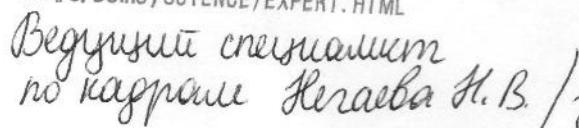 SCIENCE/EXPERT.HTML
Ведущий специалист
по кадрам Негаева Н.В. /